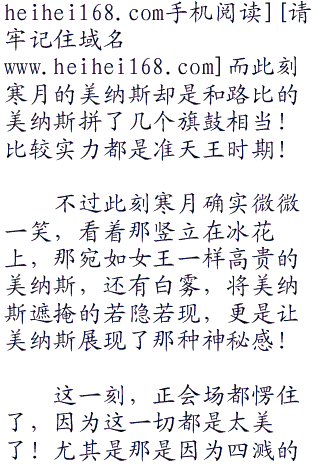 heihei168.com手机阅读][请
牢记住域名
www.heihei168.com]而此刻
寒月的美纳斯却是和路比的
美纳斯拼了几个旗鼓相当！
比较实力都是准天王时期！
不过此刻寒月确实微微
一笑，看着那竖立在冰花
上，那宛如女王一样高贵的
美纳斯，还有白雾，将美纳
斯遮掩的若隐若现，更是让
美纳斯展现了那种神秘感！
这一刻，正会场都愣住
了，因为这一切都是太美
了！尤其是那是因为四溅的